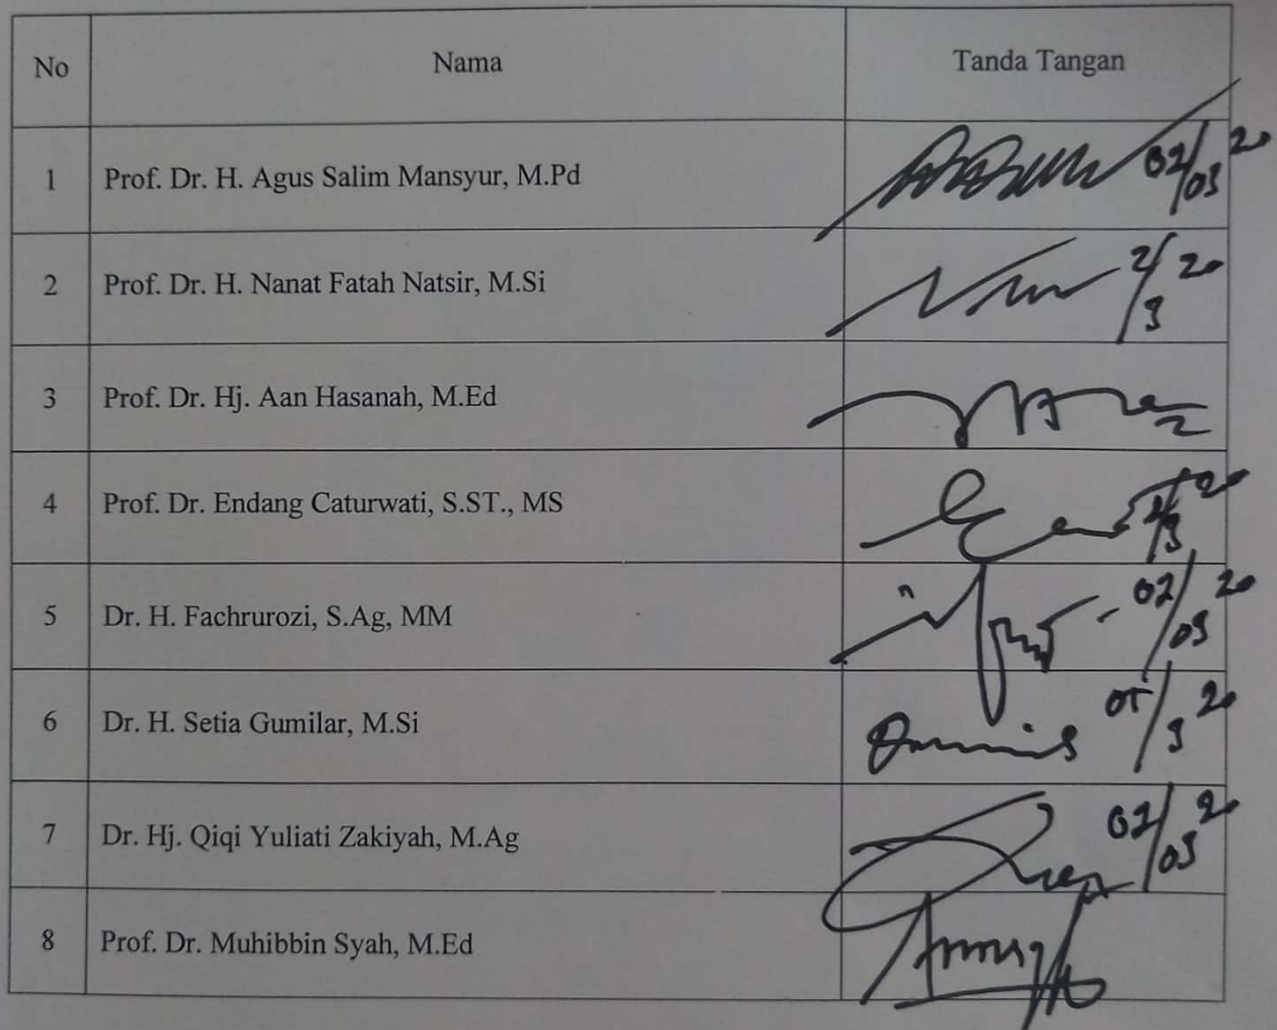 No Nama Tanda Tangan
1 Prof. Dr. H. Agus Salim Mansyur, M.Pd 02/03 20
2 Prof. Dr. H. Nanat Fatah Natsir, M.Si 2/3 20
3 Prof. Dr. Hj. Aan Hasanah, M.Ed
4 Prof. Dr. Endang Caturwati, S.ST., MS 2/3 20
5 Dr. H. Fachrurozi, S.Ag, MM 02/03 20
6 Dr. H. Setia Gumilar, M.Si /3 20
7 Dr. Hj. Qiqi Yuliati Zakiyah, M.Ag 02/03 20
8 Prof. Dr. Muhibbin Syah, M.Ed